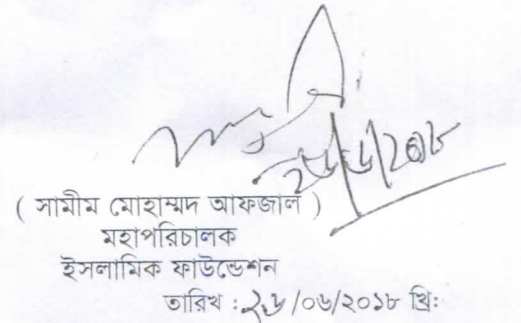 ২৬/৬/২০১৮
( সামীম মোহাম্মদ আফজাল )
মহাপরিচালক
ইসলামিক ফাউন্ডেশন
তারিখ : ২৬ /০৬/২০১৮ খ্রি: